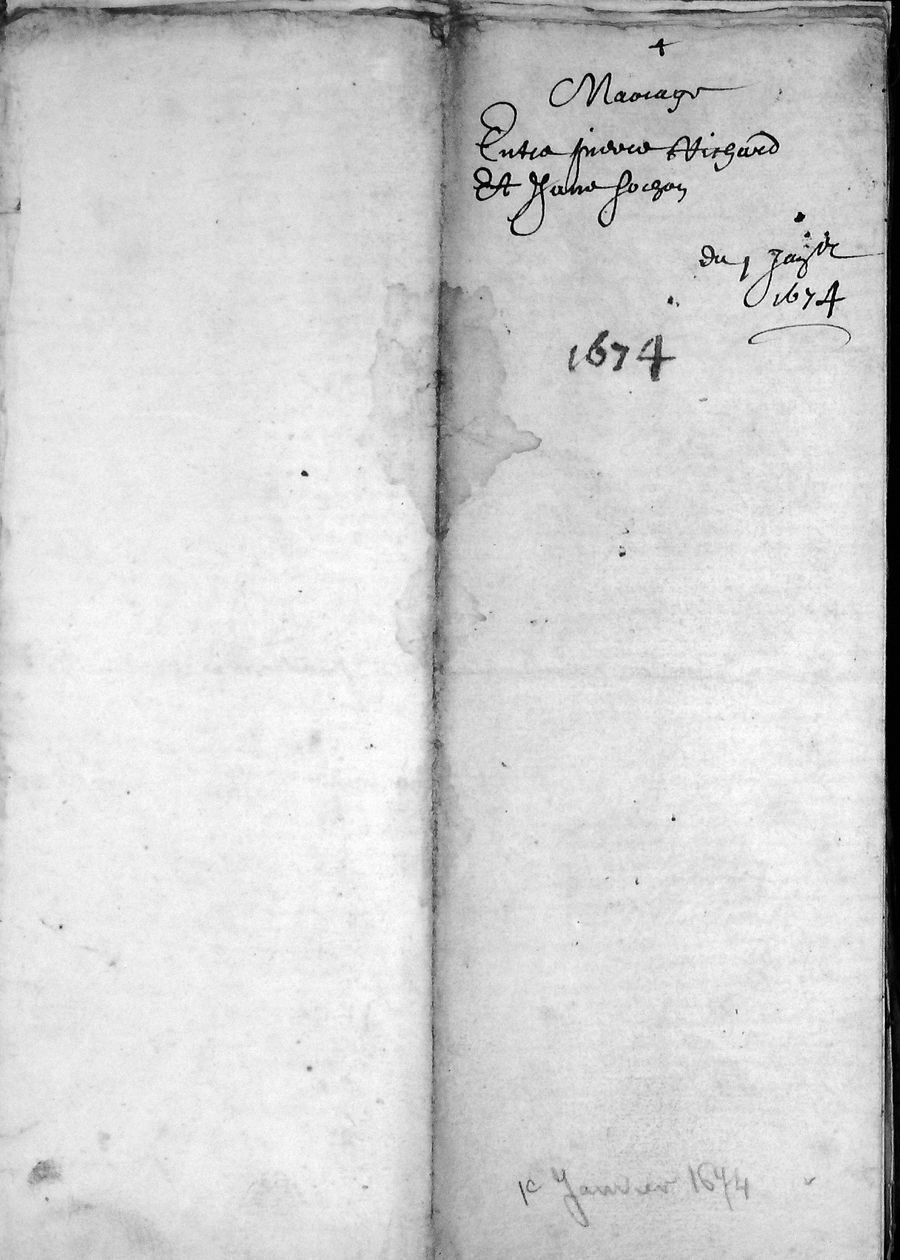 4
Mariage
Entre pierre Richard
Et Jane
du 1 Janver
1674
1674
1er Janvier 1674